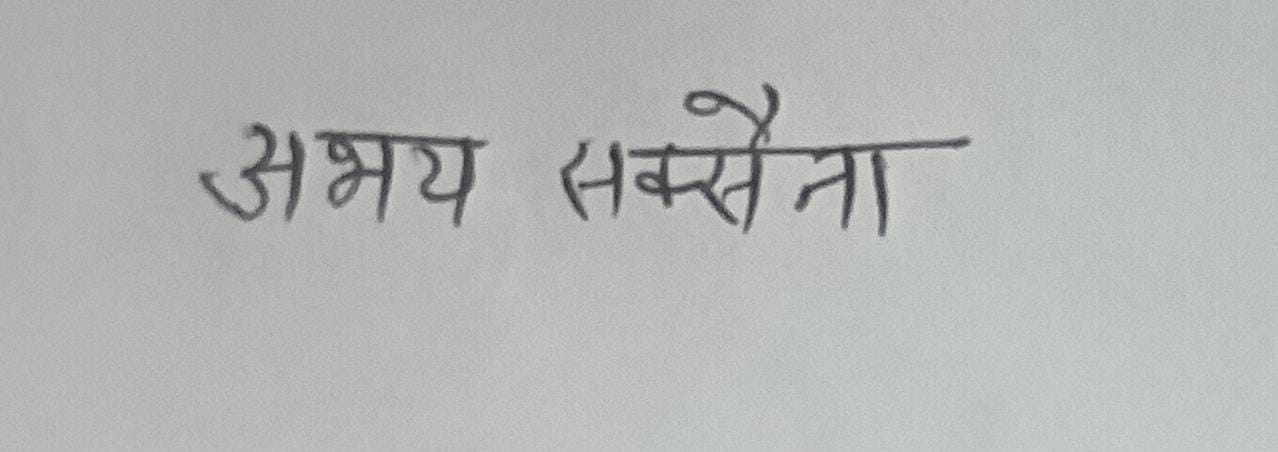 अभय सक्सैना